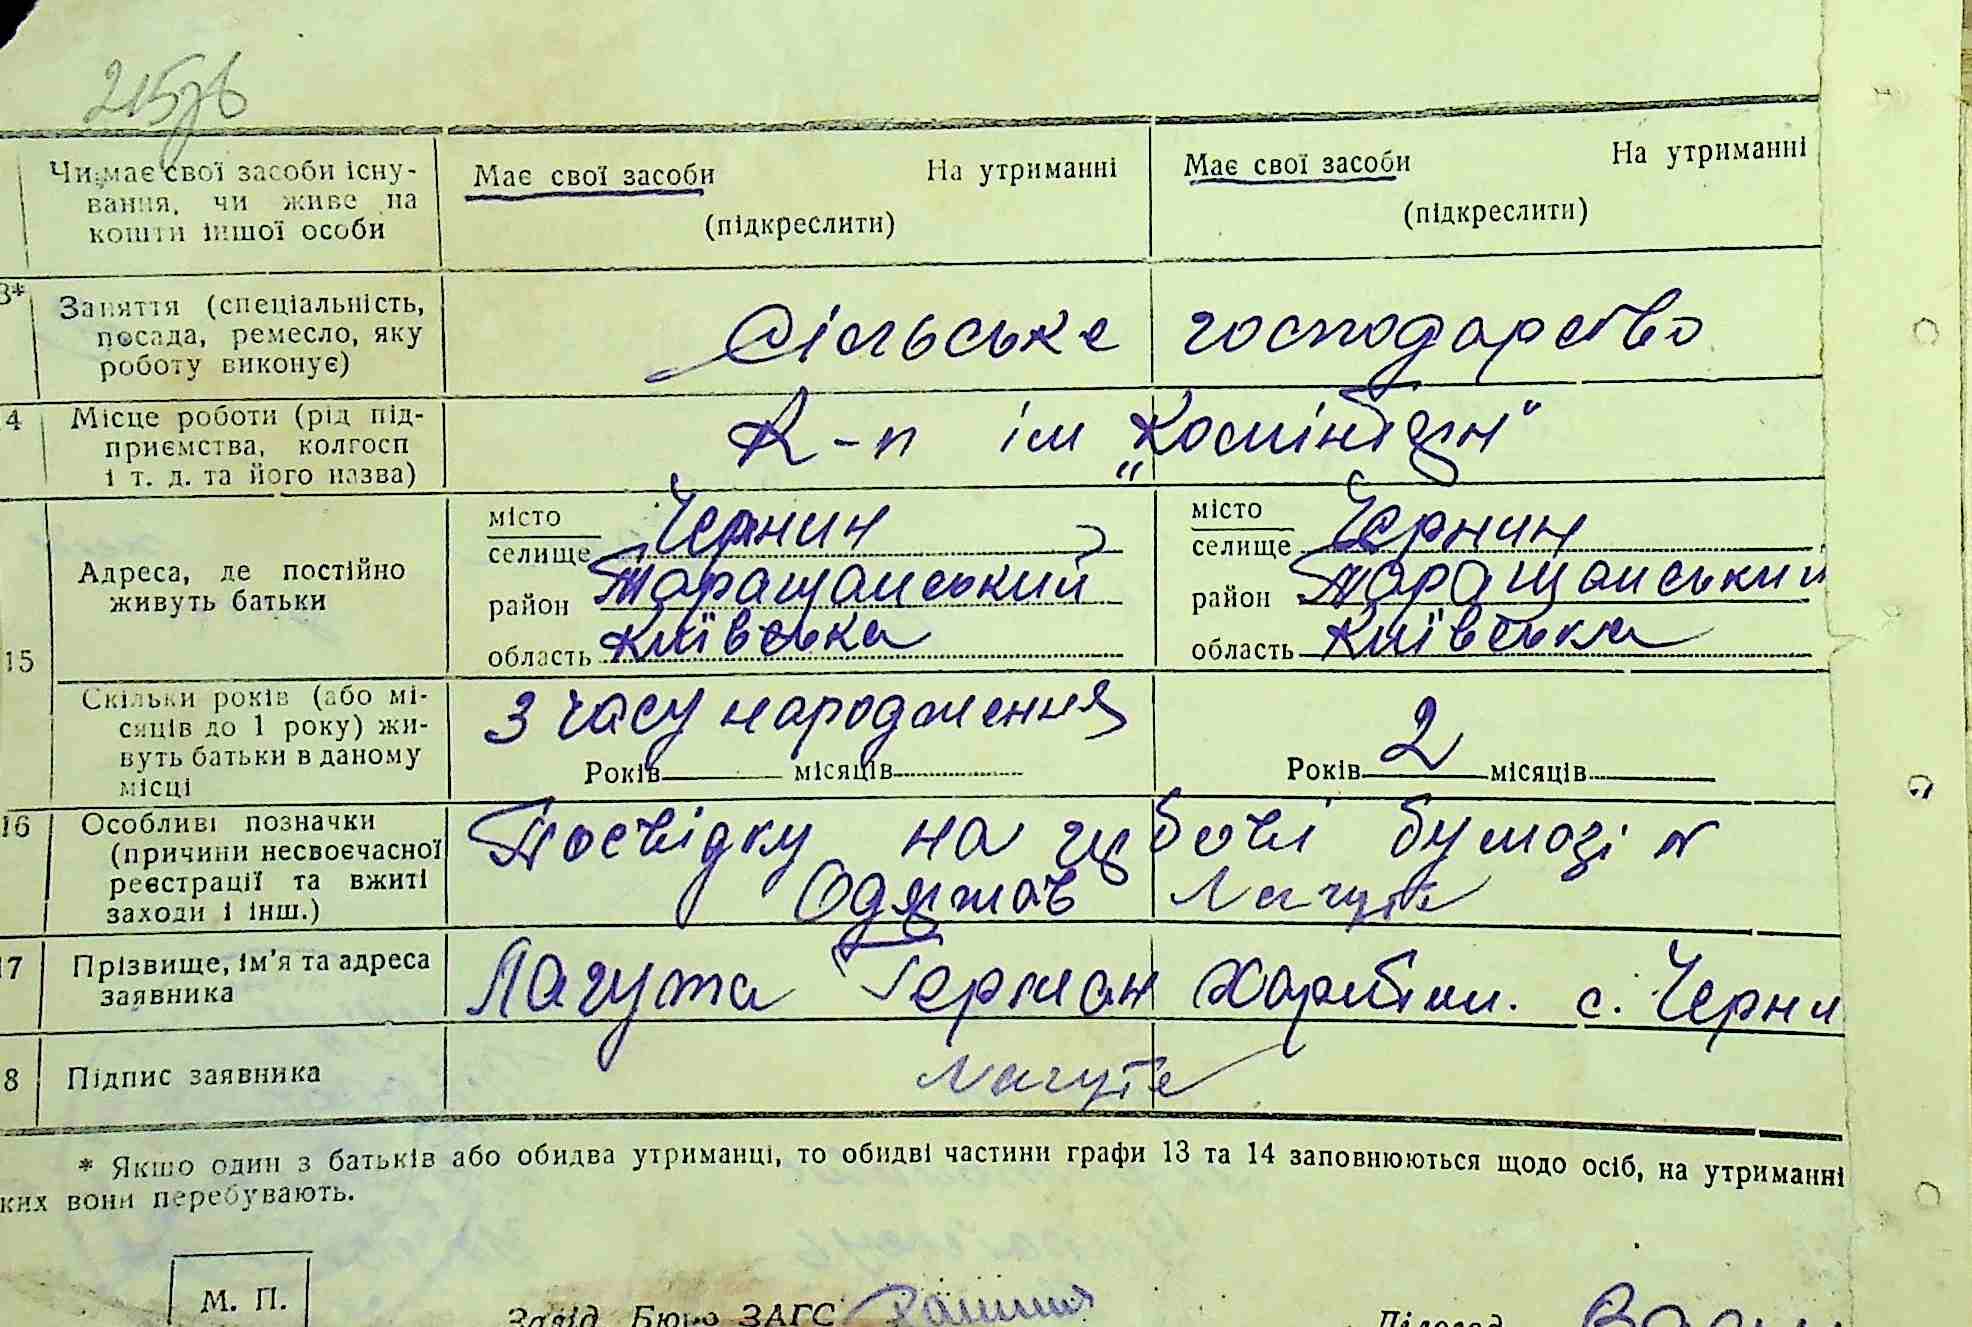 215зв
Чи має свої засоби існу-
вання, чи живе на
кошти іншої особи
Має свої засоби На утриманні
(підкреслити)
Має свої засоби На утриманні
(підкреслити)
3* Заняття (спеціальність,
посада, ремесло, яку
роботу виконує)
Сільське господарство
4 Місце роботи (рід під-
приємства, колгосп
і т. д. та його назва)
К-п ім
15 Адреса, де постійно
живуть батьки
місто
селище Чернин
район Таращанський
область Київська
місто
селище Чернин
район Таращанський
область Київська
Скільки років (або мі-
сяців до 1 року) жи-
вуть батьки в даному
місці
З часу народження
Років місяців
Років 2 місяців
16 Особливі позначки
(причини несвоєчасної
реєстрації та вжиті
заходи і інш.)
Посвідку на бумозі
Одержав Лагута
17 Прізвище, ім'я та адреса
заявника
Лагута Герман с. Черни
8 Підпис заявника
Лагута
* Якшо один з батьків або обидва утриманці, то обидві частини графи 13 та 14 заповнюються щодо осіб, на утриманні
ких вони перебувають.
М. П.
Завід. Бюро ЗАГС
Діловод